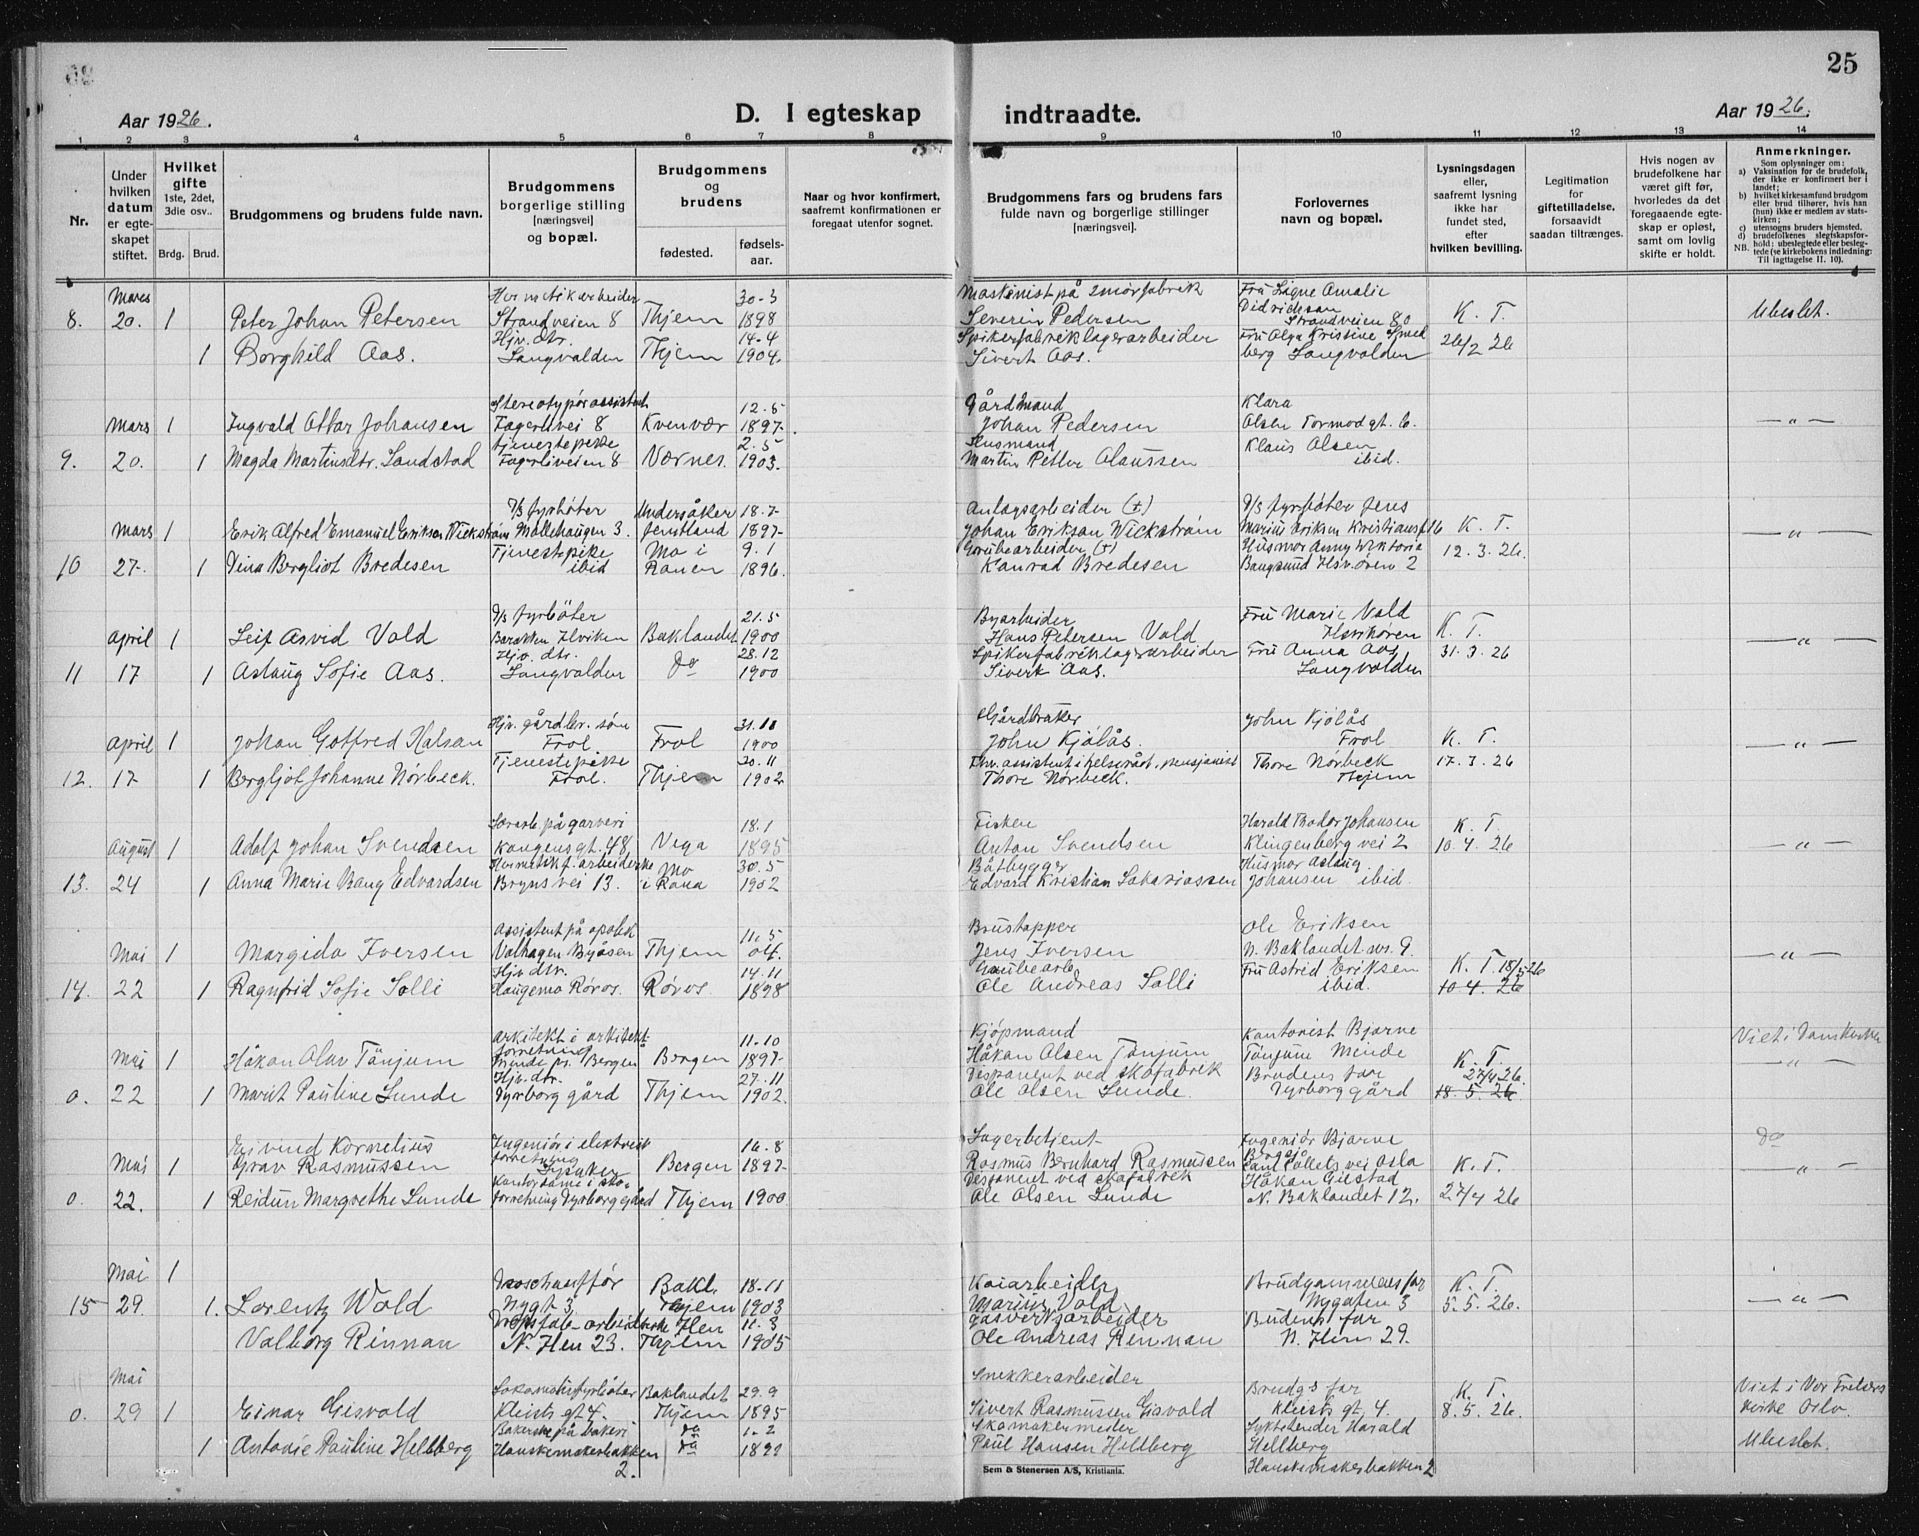 25
Aar 1926.
D. I egteskap indtraadte.
Aar 1926.
1 2 3 4 5 6 7 8 9 10 11 12 13 14
Nr.
Under hvilken datum er egteskapet stiftet.
Hvilket gifte 1ste, 2det, 3die osv..
Brdg. Brud.
Brudgommens og brudens fulde navn.
Brudgommens borgerlige stilling [næringsvei] og bopæl.
Brudgommens og brudens
fødested.
fødselsaar.
Naar og hvor konfirmert, saafremt konfirmationen er foregaat utenfor sognet.
Brudgommens fars og brudens fars fulde navn og borgerlige stillinger [næringsvei].
Forlovernes navn og bopæl.
Lysningsdagen eller, saafremt lysning ikke har fundet sted, efter hvilken bevilling.
Legitimation for giftetilladelse, forsaavidt saadan tiltrænges.
Hvis nogen av brudefolkene har været gift før, hvorledes da det foregaaende egteskap er opløst, samt om lovlig skifte er holdt.
Anmerkninger.
Som oplysninger om:
a) Vaksination for de brudefolk, der ikke er konfirmert her i landet;
b) hvilket kirkesamfund brudgom eller brud tilhører, hvis han (hun) ikke er medlem av statskirken;
c) utensogns bruders hjemsted.
d) brudefolkenes slegtskapsforhold: ubeslegtede eller beslegtede (se kirkebokens indledning:
NB. Til iagttagelse II. 10).
Mars 30-3 Maskinist på smørfabrik Fru Signe Amalie
8. 20. 1 Peter Johan Petersen Strandveien 8 Thjem 1898 Severin Pedersen Didriksen Strandveien 80 K. T. Ubeslet.
Hjv. dtr. 14-4 Spikerfabriklagerarbeider Fru Olga Kristine Smed
1 Borghild Aas. Langvalden Thjem 1904. Sivert Aas. berg Langvalden 26/2 26
Stereotypørassistent 12-5 Gårdmand Klara
Mars 1 Ingvald Ottar Johansen Fagerlivei 8 Kvenvær 1897. Johan Pedersen Olsen Tormodgt. 6. — " —
Tjenestepike 2.5 Husmand Klaus Olsen
9. 20. 1 Magda Martinsdtr. Sandstad Fagerliveien 8 Værnes. 1903. Martin Petter Olaussen ibid.
D/S fyrbøter Undersåker 18.7 Anlægsarbeider (+) D/S fyrbøter Jens
Mars 1 Erik Alfred Emanuel Eriksen Wickstrøm Møllehaugen 3. Jemtland 1897. Johan Eriksan Wickstrøm Marius Eriksen Kristiansf. 16 K. T. — " —
Tjenestepike Mo i 9.1 Grubearbeider (+) Husmor Anny Viktoria 12.3.26.
10 27. 1 Dina Bergliot Bredesen ibid Ranen 1896. Konrad Bredesen Bangsund Ilsv.øren 2
D/S fyrbøter 21.5 Byarbeider Fru Marie Vold
April 1 Leif Asvid Vold Barakken Ilviken Baklandet 1900 Hans Petersen Vold Ilsvikøren K. T. — " —
Hjv. dtr. 28.12 Spikerfabriklagerarbeider Fru Anna Aas 31.3.26
11 17 1 Aslaug Sofie Aas. Langvalden do 1900 Sivert Aas. Langvalden
Hjv. gårdbr. søn 31.10 Gårdbruker John Kjølås
April 1 Johan Gotfred Halsan Frol Frol 1900 John Kjølås. Frol K. T. — " —
Tjenestepike 30.11 Fhv. assistent i helseråd, pensjonist Thore Nørbeck 17.3.26
12. 17 1 Bergljot Johanne Nørbeck. Frol. Thjem 1902 Thore Nørbeck. Thjem
på garveri 18.1 Fisker Harald Johansen K. T.
August 1 Adolf Johan Svendsen Kongensgt. 48, Vega 1895 Anton Svendsen Klingenberg vei 2 10.4.26 — " —
Hermetikkf. arbeiderske Mo 30.5 Båtbygger Husmor Aslaug
13. 24 1 Anna Marie Bang Edvardsen Bryns vei 13. i Rana 1902 Edvard Kristian Sakariassen Johansen ibid.
Assistent på apotek 11.5 Brustapper Ole Eriksen
Mai 1 Margido Iversen Valhaugen Byåsen Thjem 04. Jens Iversen N. Baklandet 9 — " —
Hjv. dtr. 14.11 Grubearb. Fru Astrid Eriksen K. T. 18/5 26
14. 22 1 Ragnfrid Sofie Solli Haugemo Røros. Røros. 1898 Ole Andreas Solli ibid. 10.4.26
Arkitekt i arkitekt 11.10 Kjøpmand Kontorist Bjarne Viet i Domkirken
Mai 1 Håkon Olav Tönjum forretning Minde pr. Bergen Bergen 1897 Håkan Olsen Tönjum Tönjum Minde K. T. — " —
Hjv. dtr. 27.11 Disponent ved skofabrik Brudens far 27/4 26.
0. 22 1 Marit Pauline Lunde Dyrborg gård Thjem 1902. Ole Olsen Lunde. Dyrborg gård 18.5.26
Eivind Kornelius Ingeniør i elektrisk 16.8 Lagerbetjent Ingeniør Bjarne do
Mai 1 Grav Rasmussen forretning Lysaker Bergen 1897 Rasmus Bernhard Rasmussen vei Oslo K. T. — " —
Kontordame i sko- Disponent ved skofabrik Håkon Gilstad
0. 22. 1 Reidun Margrethe Lunde forretning Dyrborg gård Thjem 1900. Ole Olsen Lunde N. Baklandet 12. 27/4 26
Mai 1 Drosjchauffør Bakl. 18.11 Kaiarbeider Brudgommenes far K. T.
15 29. 1. Lorentz Wold Nygt 3 Thjem 1903 Marius Vold Nygaten 3 5.5.26. — " —
Hen 11.3 Gasverksarbeider Brudens far
Valborg Rinnan N. Ilen 23. Thjem 1905 Ole Andreas Rinnan N. Ilen 29.
Mai Lokomotivfyrbøter Baklandet 29.9 Snekkerarbeider Brudgs far K. T. Viet i Vor Frelsers
0. 29 1 Einar Gisvold Kleists gt 4. Thjem 1895 Sivert Rasmussen Gisvold Kleists gt. 4. 8.5.26. kirke Oslo.
Bakerske på bakeri do 1-2 Skomakermester Harald
1 Antonie Pauline Hellberg Hanskemakerbakken 2. do 1899 Paul Hansen Hellberg Hellberg Ubeslet.
Hanskemakerbakken 2
Sem & Stenersen A/S, Kristiania.